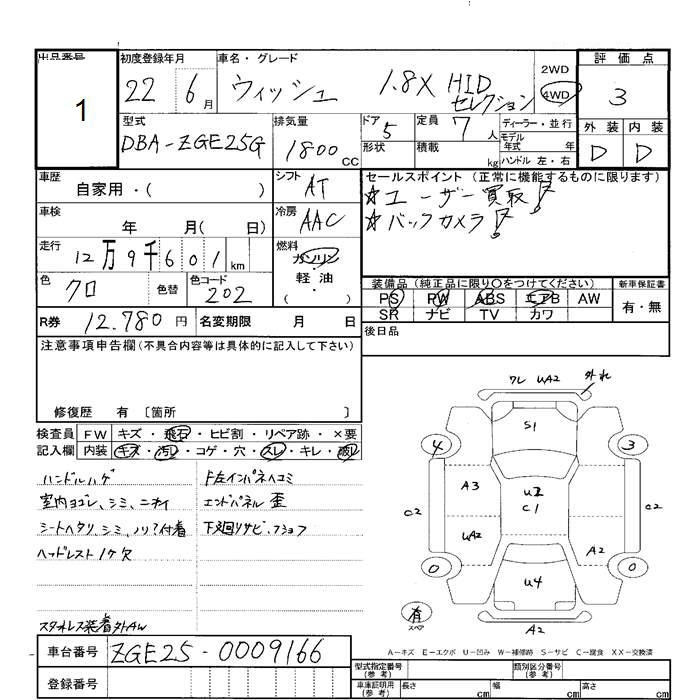 出品番号
1
初度登録年月
22 6 月
車名・グレード
ウィッシュ 1.8X HID セレクション
2WD
4WD
評価点
3
型式
DBA-ZGE25G
排気量
1800 cc
ドア 5
形状
定員 7 人
積載 kg
ディーラー・並行
モデル年式 年
ハンドル 左・右
外装 内装
D D
車歴
自家用・( )
シフト
AT
セールスポイント(正常に機能するものに限ります)
☆ユーザー買取!
☆バックカメラ!
車検
年 月( 日)
冷房
AAC
走行
12万9千601 km
燃料
ガソリン・軽油・( )
色
クロ
色替
色コード
202
装備品(純正品に限り〇をつけてください)
新車保証書
PS PW ABS エアB AW
SR ナビ TV カワ
有・無
R券 12.780 円
名変期限 月 日
後日品
注意事項申告欄(不具合内容等は具体的に記入して下さい)
修復歴 有〔箇所 〕
検査員記入欄
FW キズ・飛石・ヒビ割・リペア跡・×要
内装 キズ・汚レ・コゲ・穴・スレ・キレ・
ハンドルハゲ
室内ヨゴレ、シミ、ニオイ
シートヘタリ、シミ、ノリ?付着
ヘッドレスト1ケ欠
F左インパネヘコミ
エンドパネル歪
下廻リサビ、フショク
スタッドレス装着外AW
ワレ UA2 外れ
S1
4 3
A3
U2
C1
C2 C2
UA2 A2
0 0
U4
有
スペア
A2
A-キズ E-エクボ U-凹み W-補修跡 S-サビ C-腐食 XX-交換済
車台番号 ZGE25-0009166
登録番号
型式指定番号(参考)
類別区分番号(参考)
車庫証明用(参考)
長さ cm 幅 cm 高さ cm